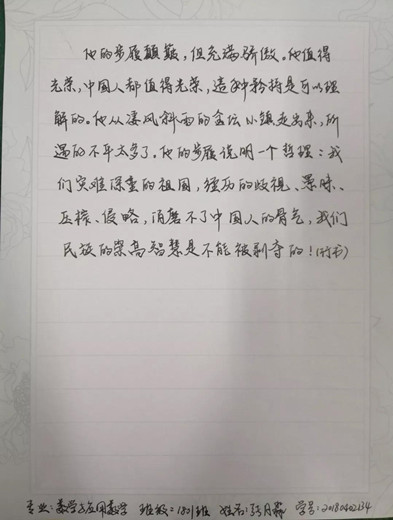 他的步履颠簸，但充满骄傲。他值得
光荣，中国人都值得光荣，这种矜持是可以理
解的。他从凄风斜雨的金坛小镇走出来，所
遇的不平太多了。他的步履说明一个哲理：我
们灾难深重的祖国，经历的歧视、愚昧、
压榨、侵略，消磨不了中国人的骨气，我们
民族的崇高智慧是不能被剥夺的！(行书)
专业：数学与应用数学 班级：1801班 姓名：张月 学号：20180402134